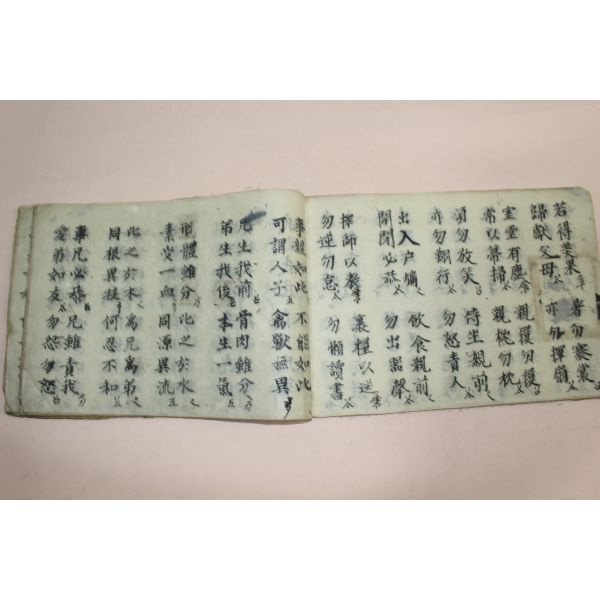 若得美果 暑勿褰裳
歸獻父母 亦勿揮扇
室堂有塵 親履勿履
常以箒掃 親枕勿枕
須勿放笑 侍坐親前
亦勿翔行 勿怒責人
出入户牖 飮食親前
開閉必恭 勿出器聲
擇師以教 裹糧以送
勿逆勿怠 勿懶讀書
事親如此 不能如此
可謂人子 禽獸無異
兄生我前 骨肉雖分
弟生我後 本生一氣
形體雖分 比之於水
素受一血 同源異流
比之於木 爲兄爲弟
同根異枝 何忍不和
事兄必恭 兄雖責我
愛弟如友 勿怒勿怨